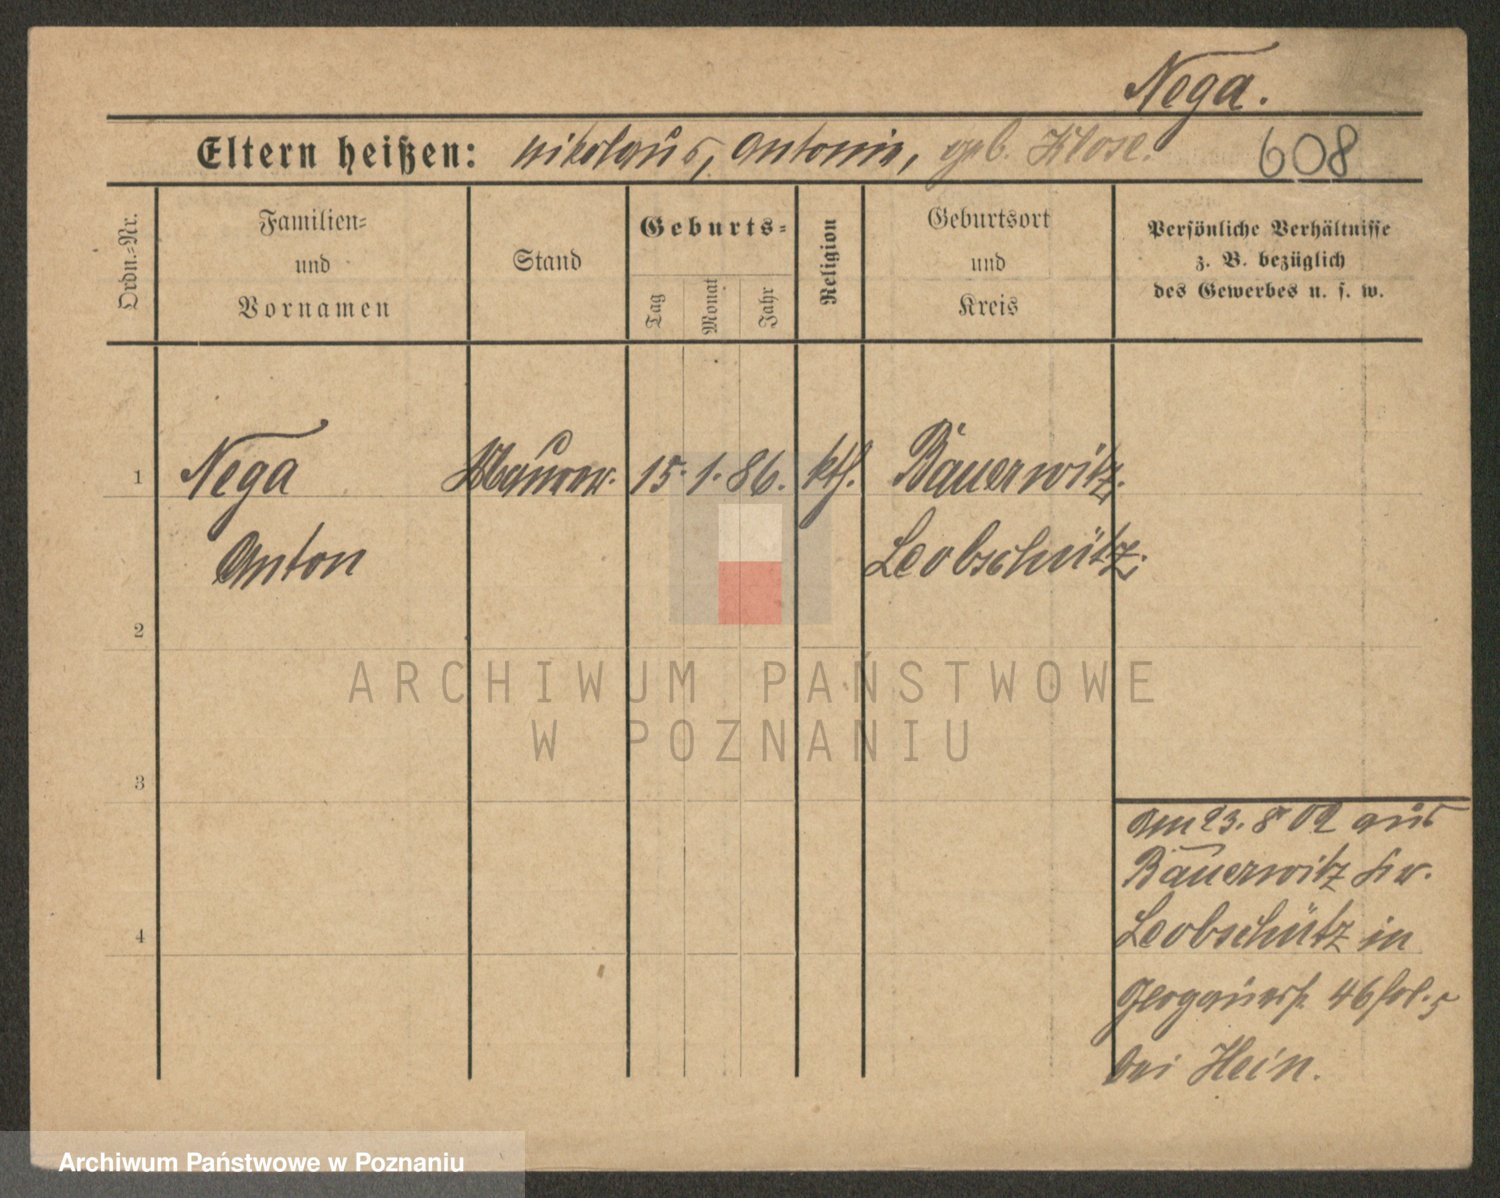 Nega.
Eltern heißen: Nikolaus, Antonie, geb. Klose. 608
Ordn.-Nr.
Familien-
und
Vornamen
Stand
Geburts-
Tag
Monat
Jahr
Religion
Geburtsort
und
Kreis
Persönliche Verhältnisse
z. B. bezüglich
des Gewerbes u. s. w.
1 Nega Maurer. 15. 1. 86. kth. Bauerwitz.
Anton Leobschütz.
2
3
4
Am 23. 8 02 aus
Bauerwitz Kr.
Leobschütz in
46
bei Hein.
ARCHIWUM PAŃSTWOWE
W POZNANIU
Archiwum Państwowe w Poznaniu